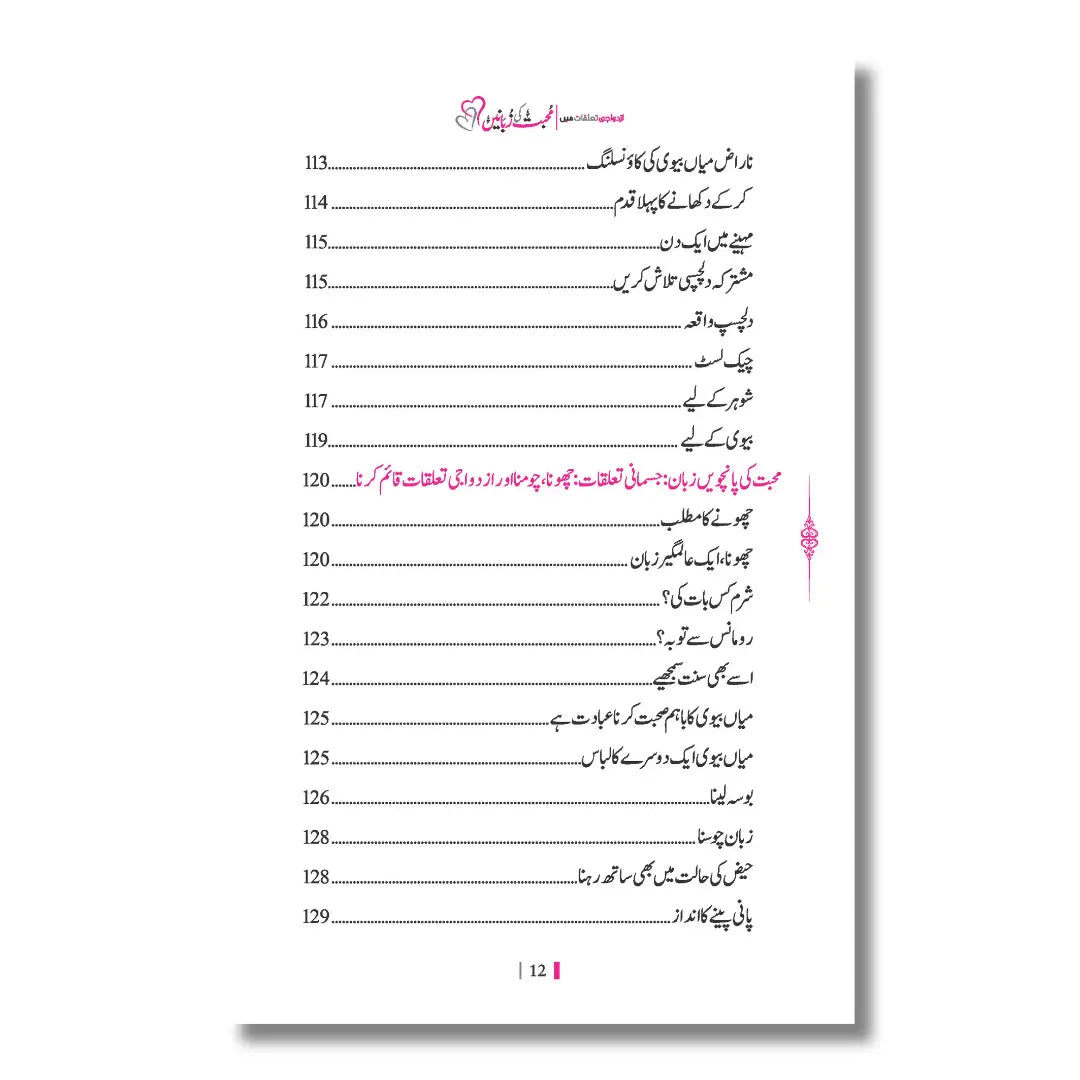 ازدواجی تعلقات میں | محبت کی زبانیں
ناراض میاں بیوی کی کاؤنسلنگ....................113
کر کے دکھانے کا پہلا قدم....................114
مہینے میں ایک دن....................115
مشترکہ دلچسپی تلاش کریں....................115
دلچسپ واقعہ....................116
چیک لسٹ....................117
شوہر کے لیے....................117
بیوی کے لیے....................119
محبت کی پانچویں زبان: جسمانی تعلقات: چھونا، چومنا اور ازدواجی تعلقات قائم کرنا......120
چھونے کا مطلب....................120
چھونا، ایک عالمگیر زبان....................120
شرم کس بات کی؟....................122
رومانس سے توبہ؟....................123
اسے بھی سنت سمجھیے....................124
میاں بیوی کا باہم صحبت کرنا عبادت ہے....................125
میاں بیوی ایک دوسرے کا لباس....................125
بوسہ لینا....................126
زبان چوسنا....................128
حیض کی حالت میں بھی ساتھ رہنا....................128
پانی پینے کا انداز....................129
| 12